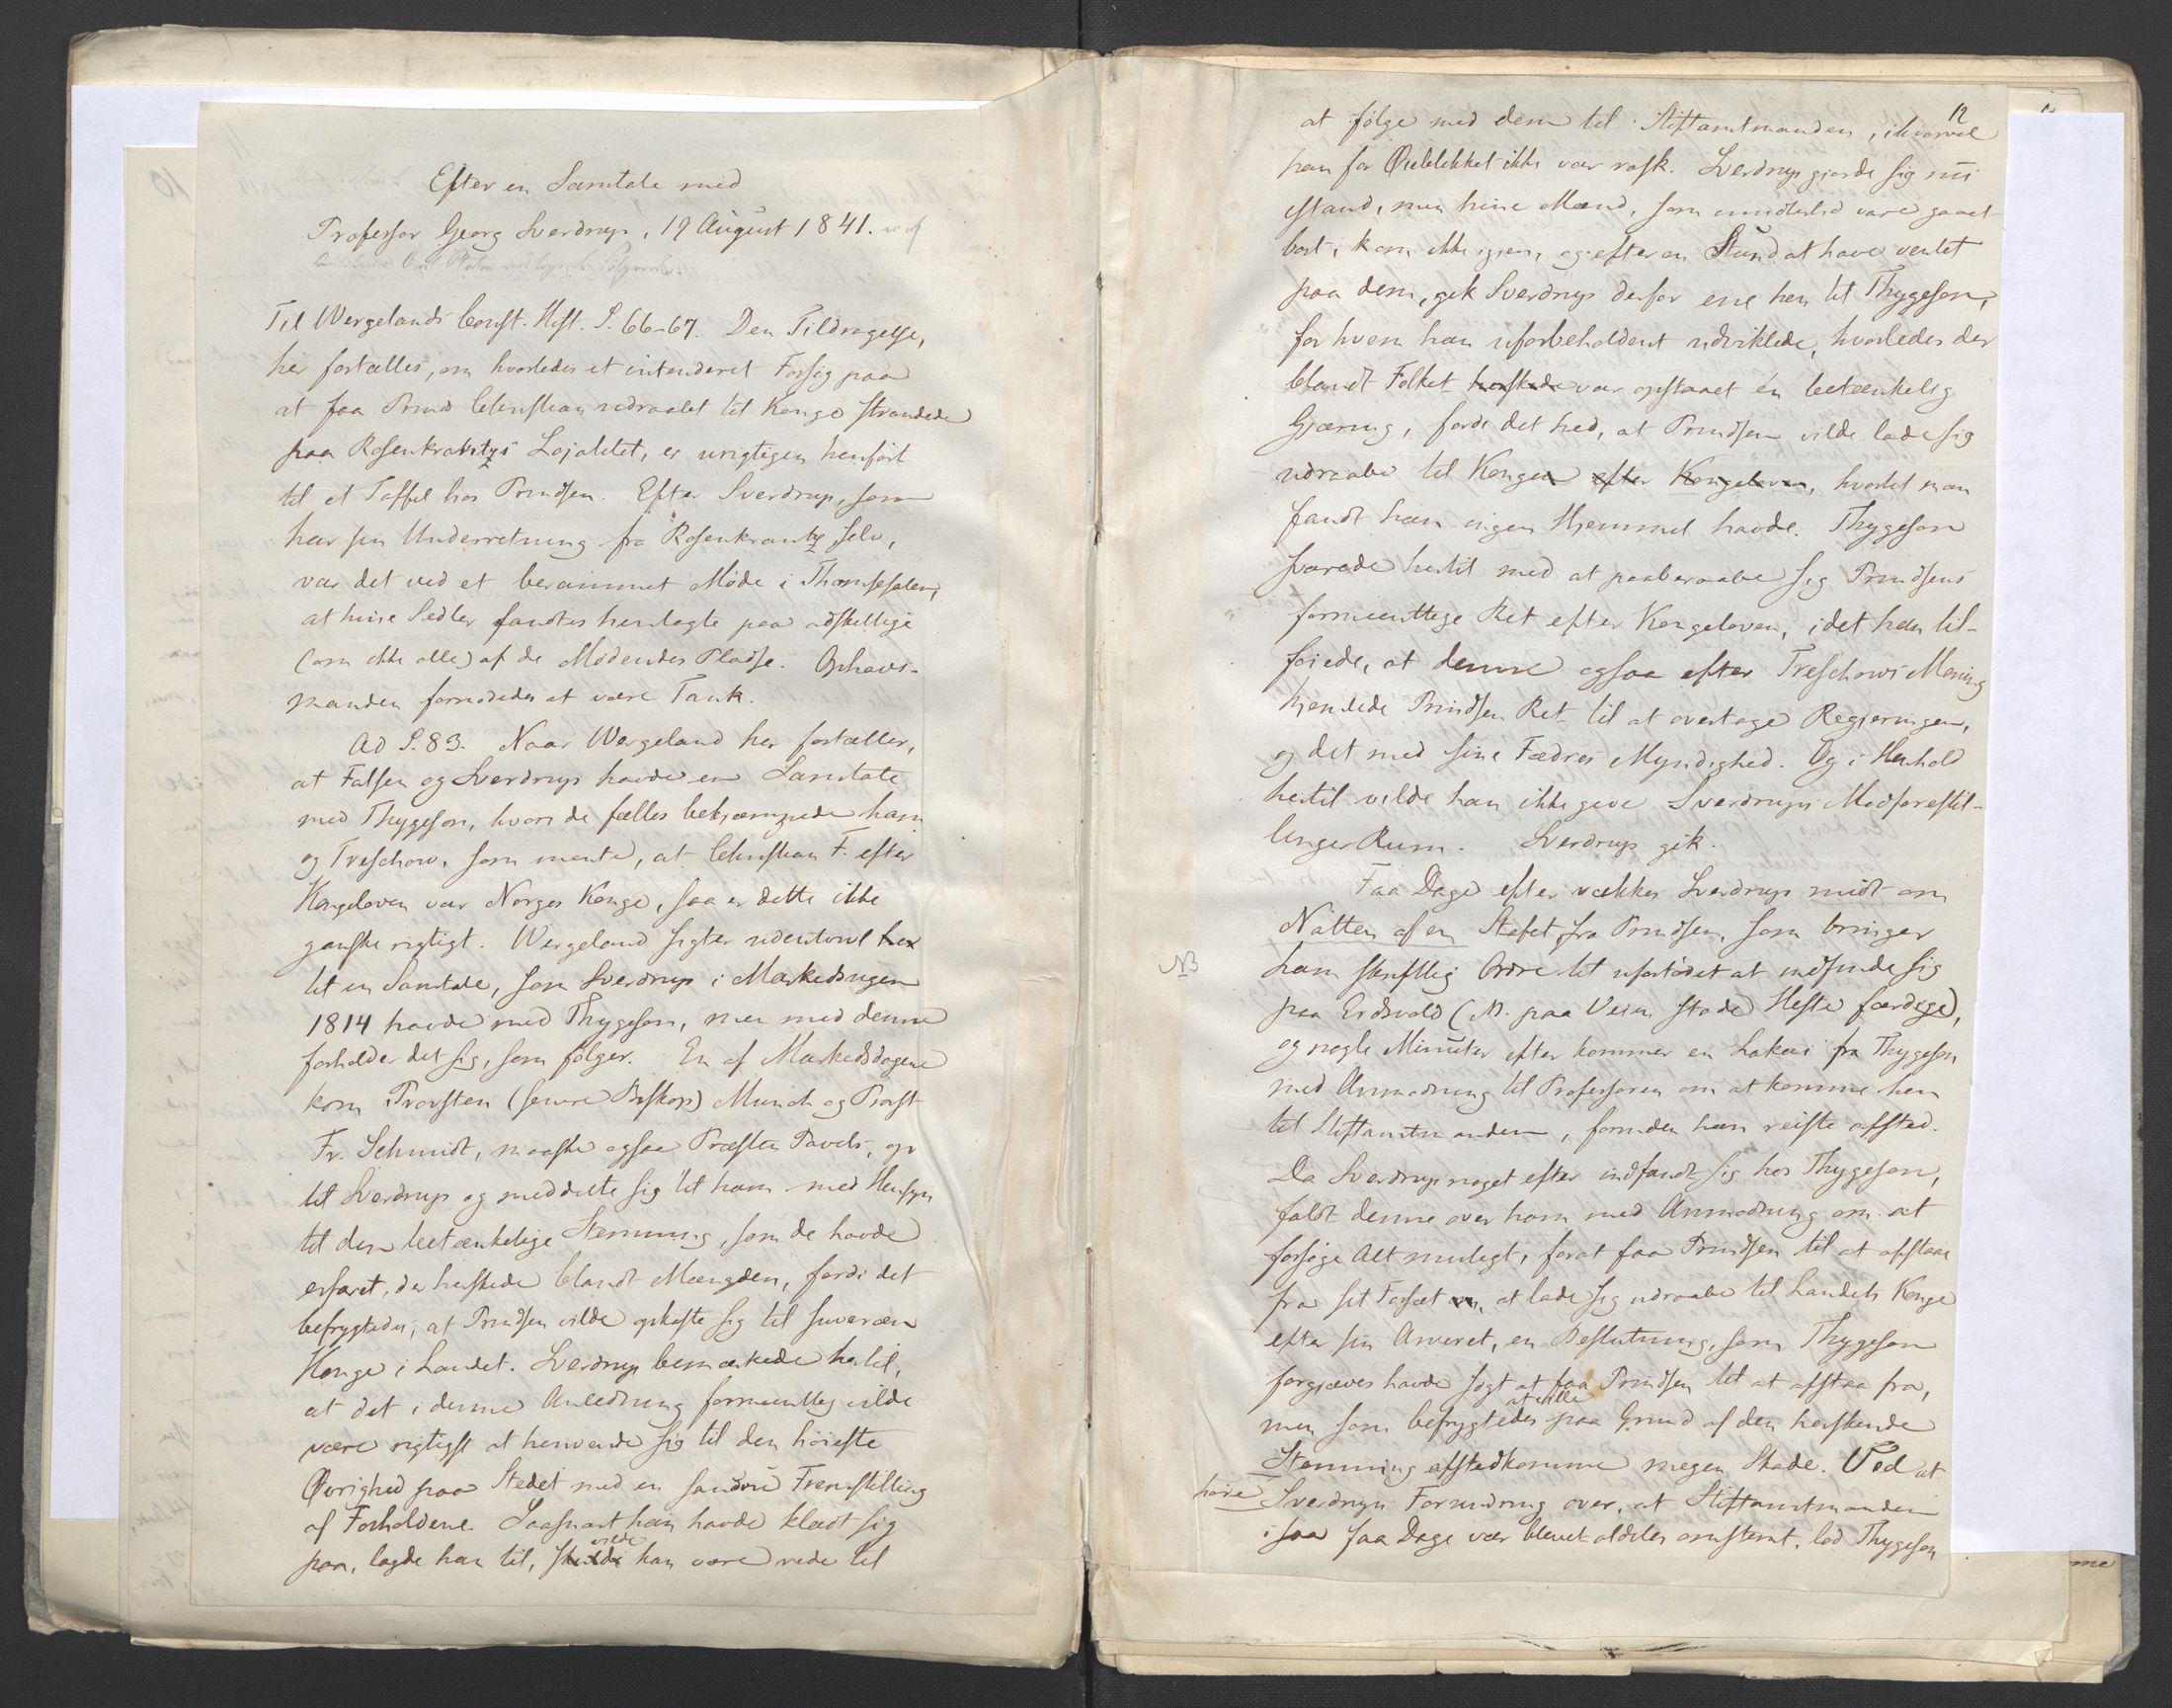 Efter en Samtale med
Professor Georg Sverdrup, 19 August 1841.
Til Wergelands Const. Hist. S. 66-67. Den Tildragelse,
her fortælles, om hvorledes et intenderet Forsøg paa
at faa Prinds Christian udraabt til Konge strandede
paa Rosenkrantz's Lojalitet, er urigtigen henført
til et Taffel hos Prindsen. Efter Sverdrup, som
har sin Underretning fra Rosenkrantz selv,
var det ved et berammet Møde i
at hine Sedler fandtes henlagte paa adskellige
(om ikke alle) af de Mødendes Pladse. Ophavs-
manden formodedes at være Tank.
Ad S. 83. Naar Wergeland her fortæller,
at Falsen og Sverdrup havde en Samtale
med Thygeson, hvori de fælles bekjæmpede ham
og Treschow, som mente, at Christian F. efter
Kongeloven var Norges Konge, saa er dette ikke
ganske rigtigt. Wergeland sigter udentvivl her
til en Samtale, som Sverdrup i Markedsugen
1814 havde med Thygeson, men med denne
forholder det sig, som følger. En af Markedsdagene
kom Provsten (senere Biskop) Munch og Provst
Fr. Schmidt, maaske ogsaa Præsten Pavels, op
til Sverdrup og meddelte sig til ham med Hensyn
til den betænkelige Stemning, som de havde
erfaret, der herskede blandt Mængden, fordi det
befrygtedes, at Prindsen vilde opkaste sig til souveræn
Konge i Landet. Sverdrup bemærkede hertil,
at det i denne Anledning formeentlig vilde
være rigtigst at henvende sig til den høieste
Øvrighed paa Stedet med en sanddrü Fremstilling
af Forholdene. Saasnart han havde klædt sig
paa, lagde han til, skulde vilde han være rede til
12
at følge med dem til Stiftamtmanden, ihvorvel
han for Øieblikket ikke var rask. Sverdrup gjorde sig nu
istand, men hine Mænd, som imidlertid vare gaaet
bort, kom ikke igjen, og efter en Stund at have ventet
paa dem, gik Sverdrup derfor ene hen til Thygeson,
for hvem han uforbeholdent udviklede, hvorledes der
blandt Folket herskede var opstaaet en betænkelig
Gjæring, fordi det hed, at Prindsen vilde lade sig
udraabe til Konge efter Kongeloven, hvortil man
fandt han ingen Hjemmel havde. Thygeson
svarede hertil med at paaberaabe sig Prindsens
formeentlige Ret efter Kongeloven, idet han til-
føiede, at denne ogsaa efter Treschows Mening
hjemlede Prindsen Ret til at overtage Regjeringen,
og det med sine Fædres Myndighed. Og i Henhold
hertil vilde han ikke give Sverdrups Modforestil-
linger Rum. Sverdrup gik.
Faa Dage efter vækkes Sverdrup midt om
Natten af en Stafet fra Prindsen, som bringer
NB
ham skriftlig Ordre til ufortøvet at indfinde sig
paa Eidsvold (N. paa Veien stode Heste færdige),
og nogle Minuter efter kommer en Lakei fra Thygeson
med Anmodning til Professoren om at komme hen
til Stiftamtmanden, forinden han reiste afsted.
Da Sverdrup noget efter indfandt sig hos Thygeson,
faldt denne over ham med Anmodning om at
forsøge Alt muligt, forat faa Prindsen til at afstaae
fra sit Forsæt om, at lade sig udraabe til Landets Konge
efter sin Arveret, en Beslutning, som Thygeson
forgjæves havde søgt at faa Prindsen til at afstaa fra,
men som befrygtedes at ville paa Grund af den herskende
Stemning afstedkomme megen Skade. Ved at
høre Sverdrups Forundring over, at Stiftamtmanden
i saa faa Dage var blevet aldeles omstemt, lod Thygeson